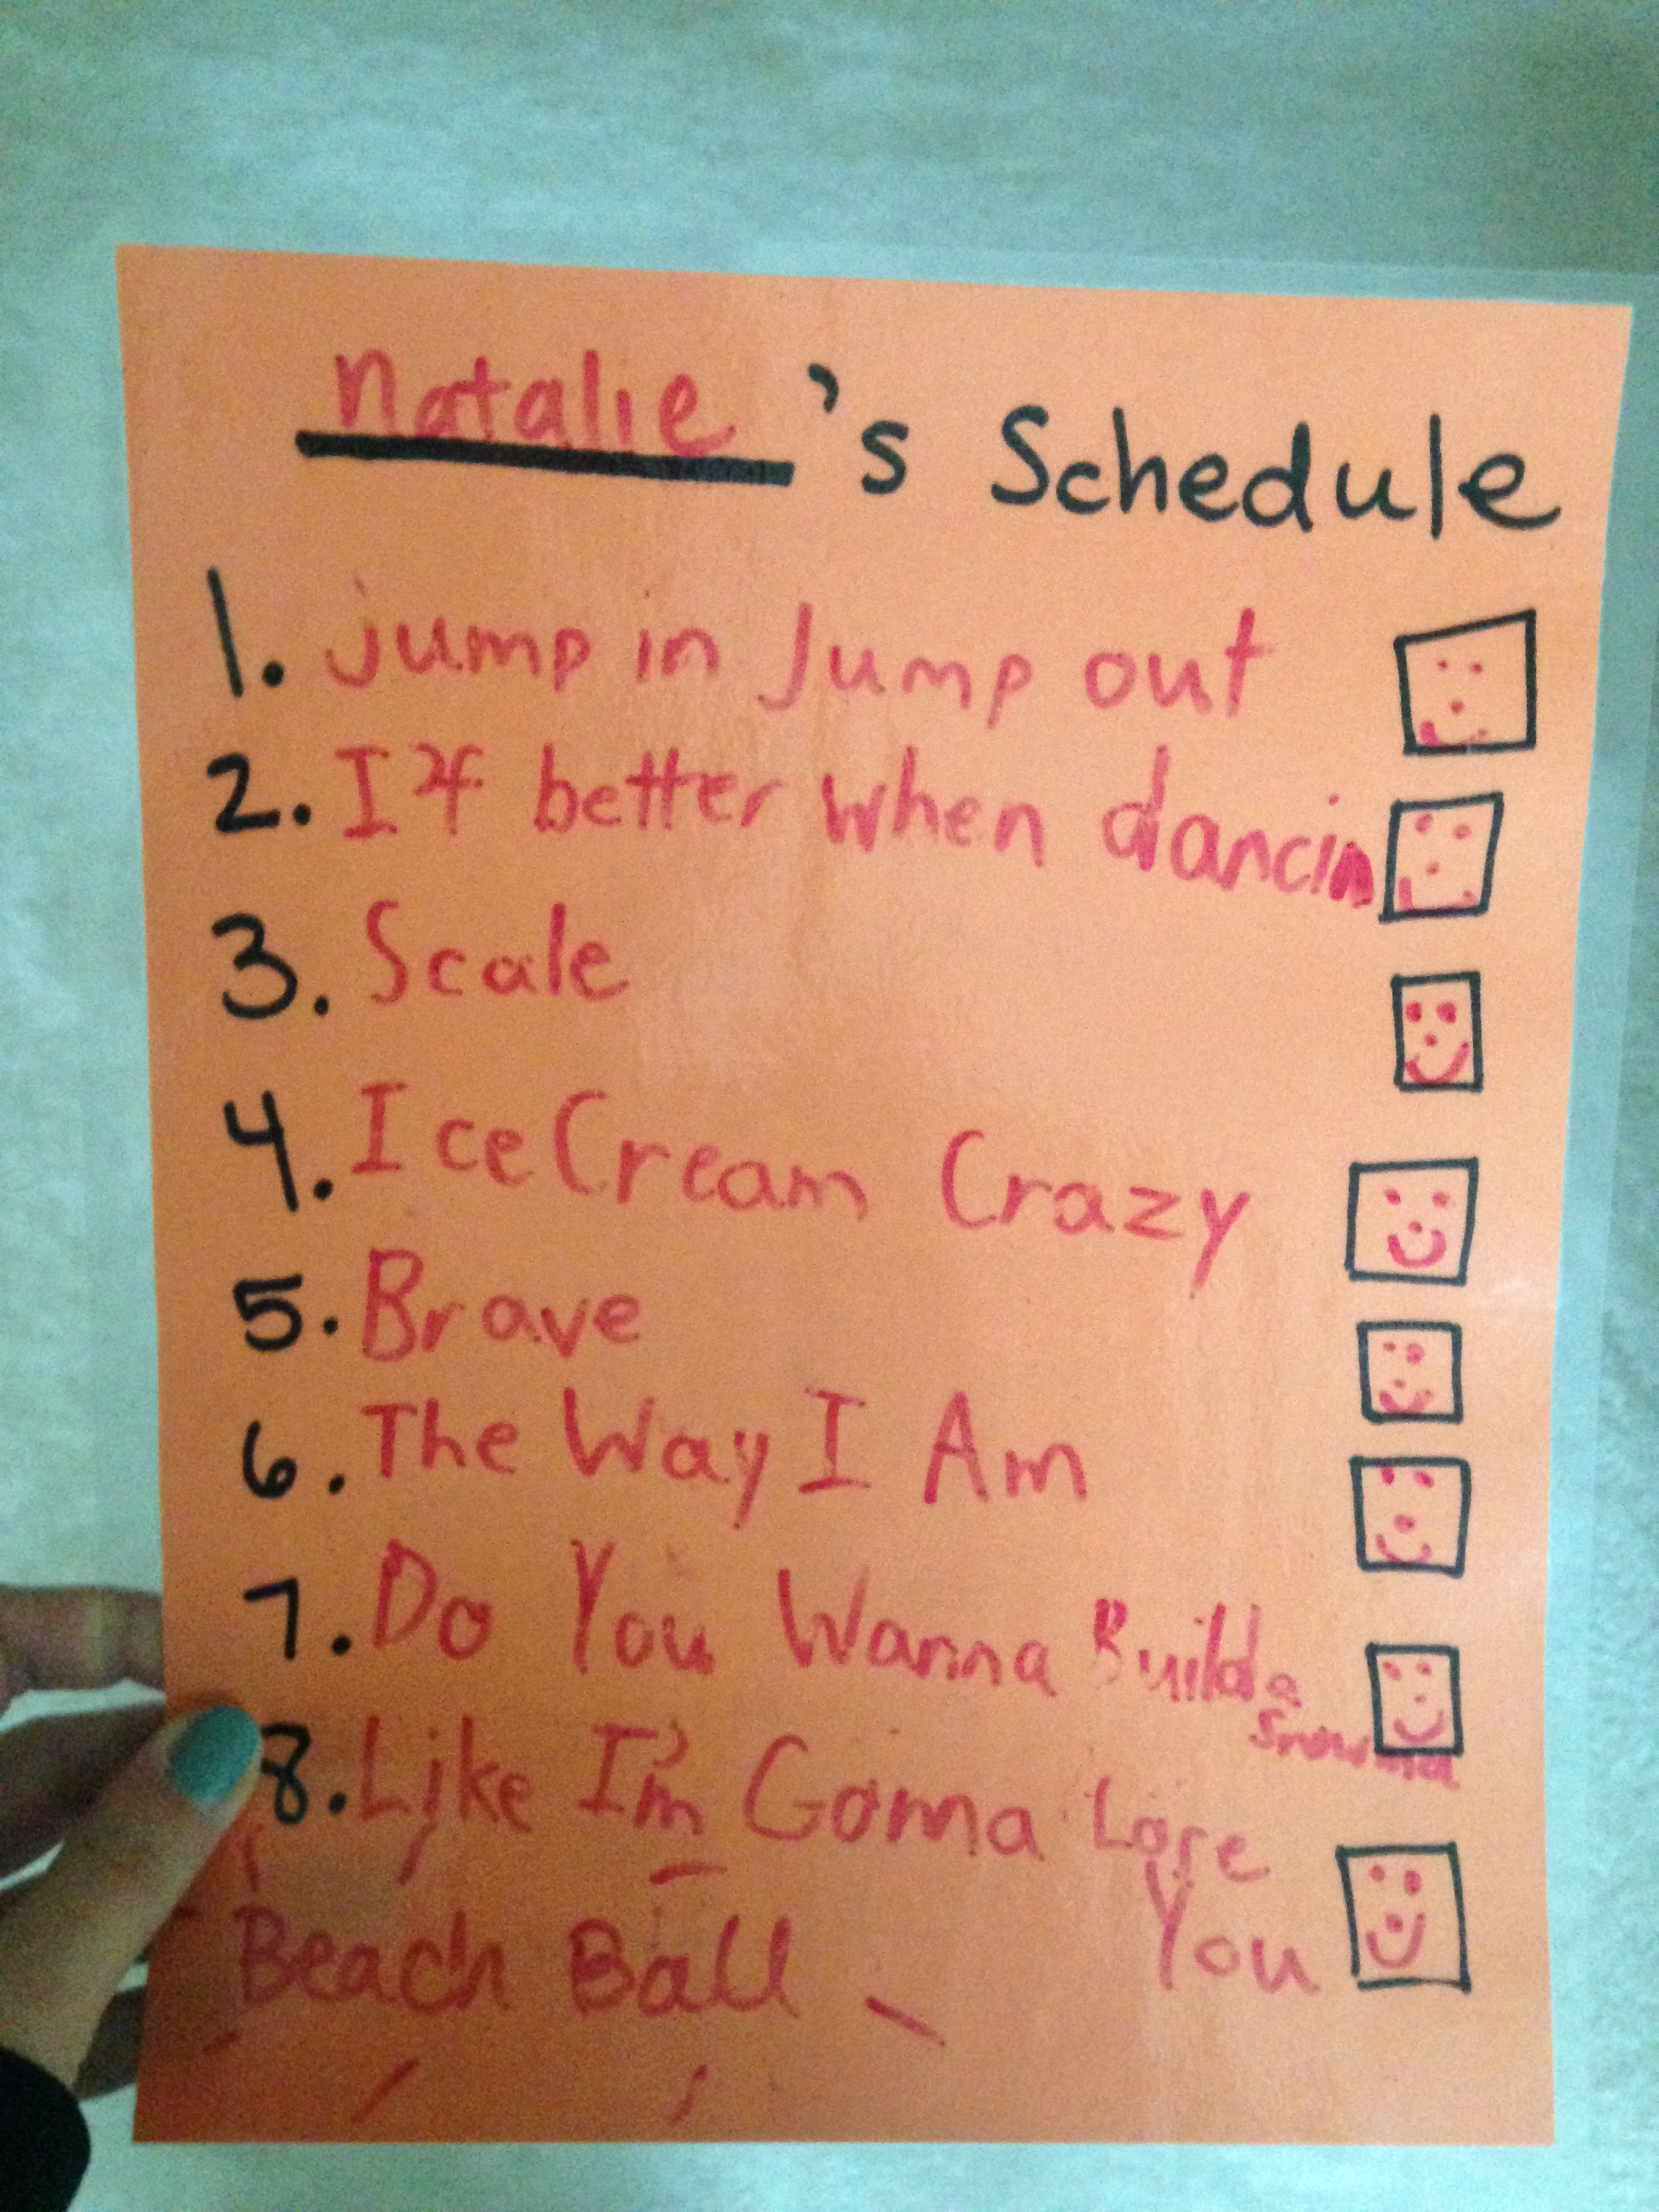 natalie's Schedule
1. jump in Jump out
2. If better when dancin
3. Scale
4. Ice Cream Crazy
5. Brave
6. The Way I Am
7. Do You Wanna Build a
Snowman
8. Like I'm Gonna Lose
You
Beach Ball